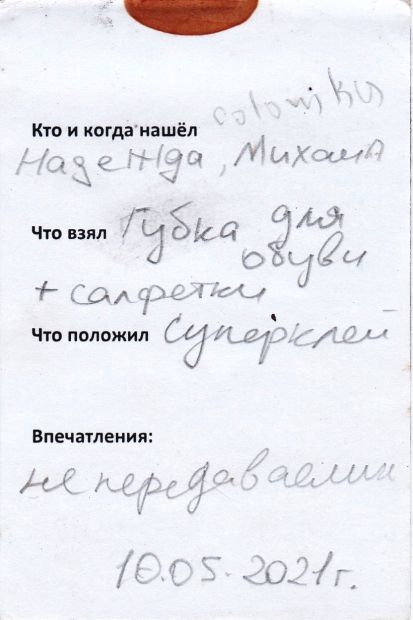 Кто и когда нашёл
Надежда, Михаил
Что взял Губка для
обуви
+ салфетки
Что положил Суперклей
Впечатления:
не передаваемии
10.05.2021г.